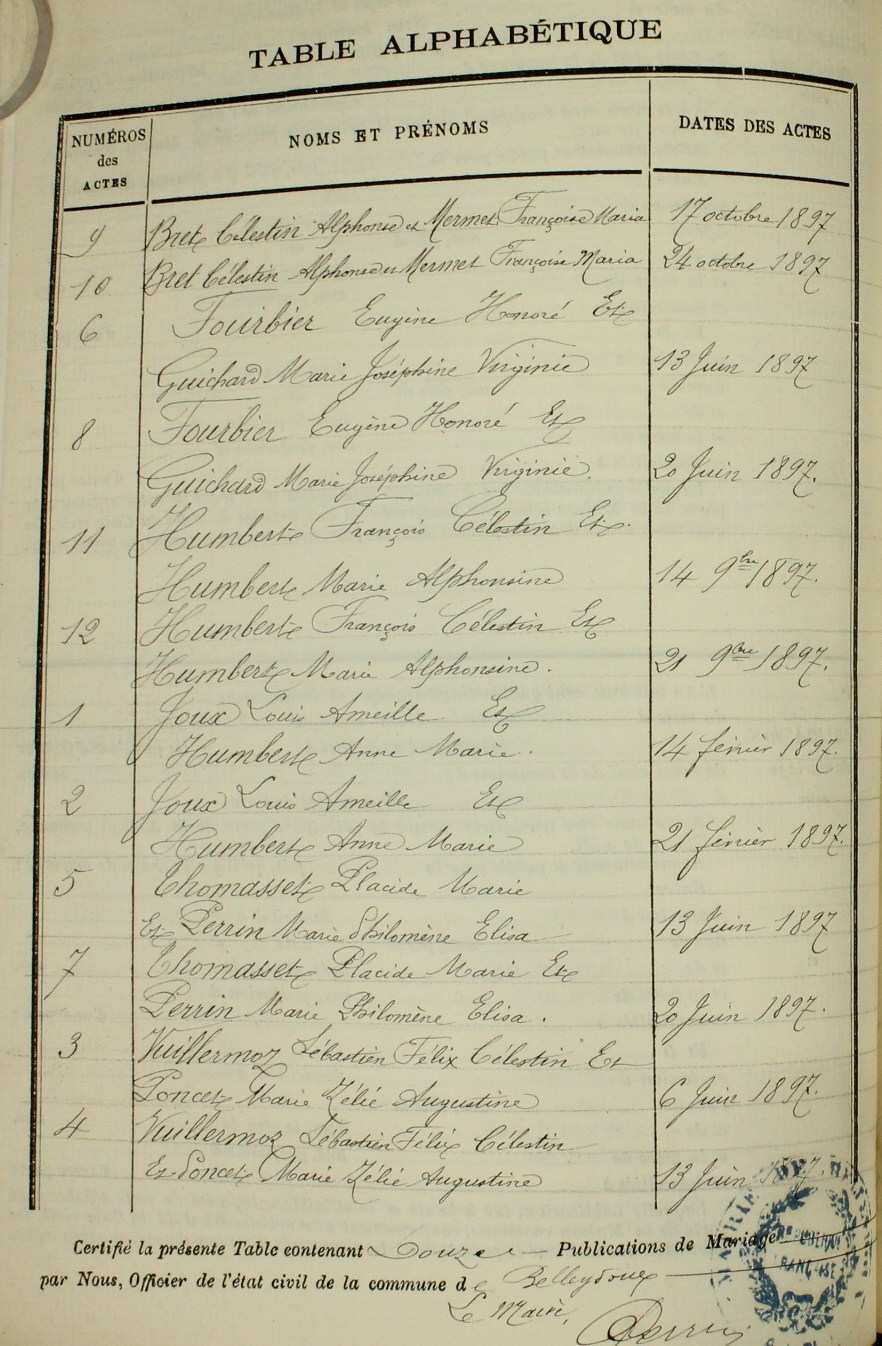 TABLE ALPHABÉTIQUE
NUMÉROS des ACTES
NOMS ET PRÉNOMS
DATES DES ACTES
9 Bret Célestin Alphonse et Mermet Françoise Maria 17 octobre 1897
10 Bret Célestin Alphonse et Mermet Françoise Maria 24 octobre 1897
6 Fourbier Eugène Honoré Et
Guichard Marie Joséphine Virginie 13 Juin 1897
8 Fourbier Eugène Honoré Et
Guichard Marie Joséphine Virginie. 20 Juin 1897.
11 Humbert François Célestin Et.
Humbert Marie Alphonsine 14 9bre 1897.
12 Humbert François Célestin Et
Humbert Marie Alphonsine. 21 9bre 1897.
1 Joux Louis Ameille Et
Humbert Anne Marie. 14 févrièr 1897.
2 Joux Louis Ameille Et
Humbert Anne Marie 21 févrièr 1897.
5 Thomasset Placide Marie
Et Perrin Marie Philomène Elisa 13 Juin 1897
7 Thomasset Placide Marie Et
Perrin Marie Philomène Elisa. 20 Juin 1897.
3 Vuillermoz Sébastien Félix Célestin Et
Poncet Marie Zélié Augustine 6 Juin 1897.
4 Vuillermoz Sébastien Félix Célestin
Et Poncet Marie Zélié Augustine 13 Juin 1897.
Certifié la présente Table contenant Douze Publications de Mariage
par Nous, Officier de l'état civil de la commune de Belleydoux
Le Maire,
Perrin